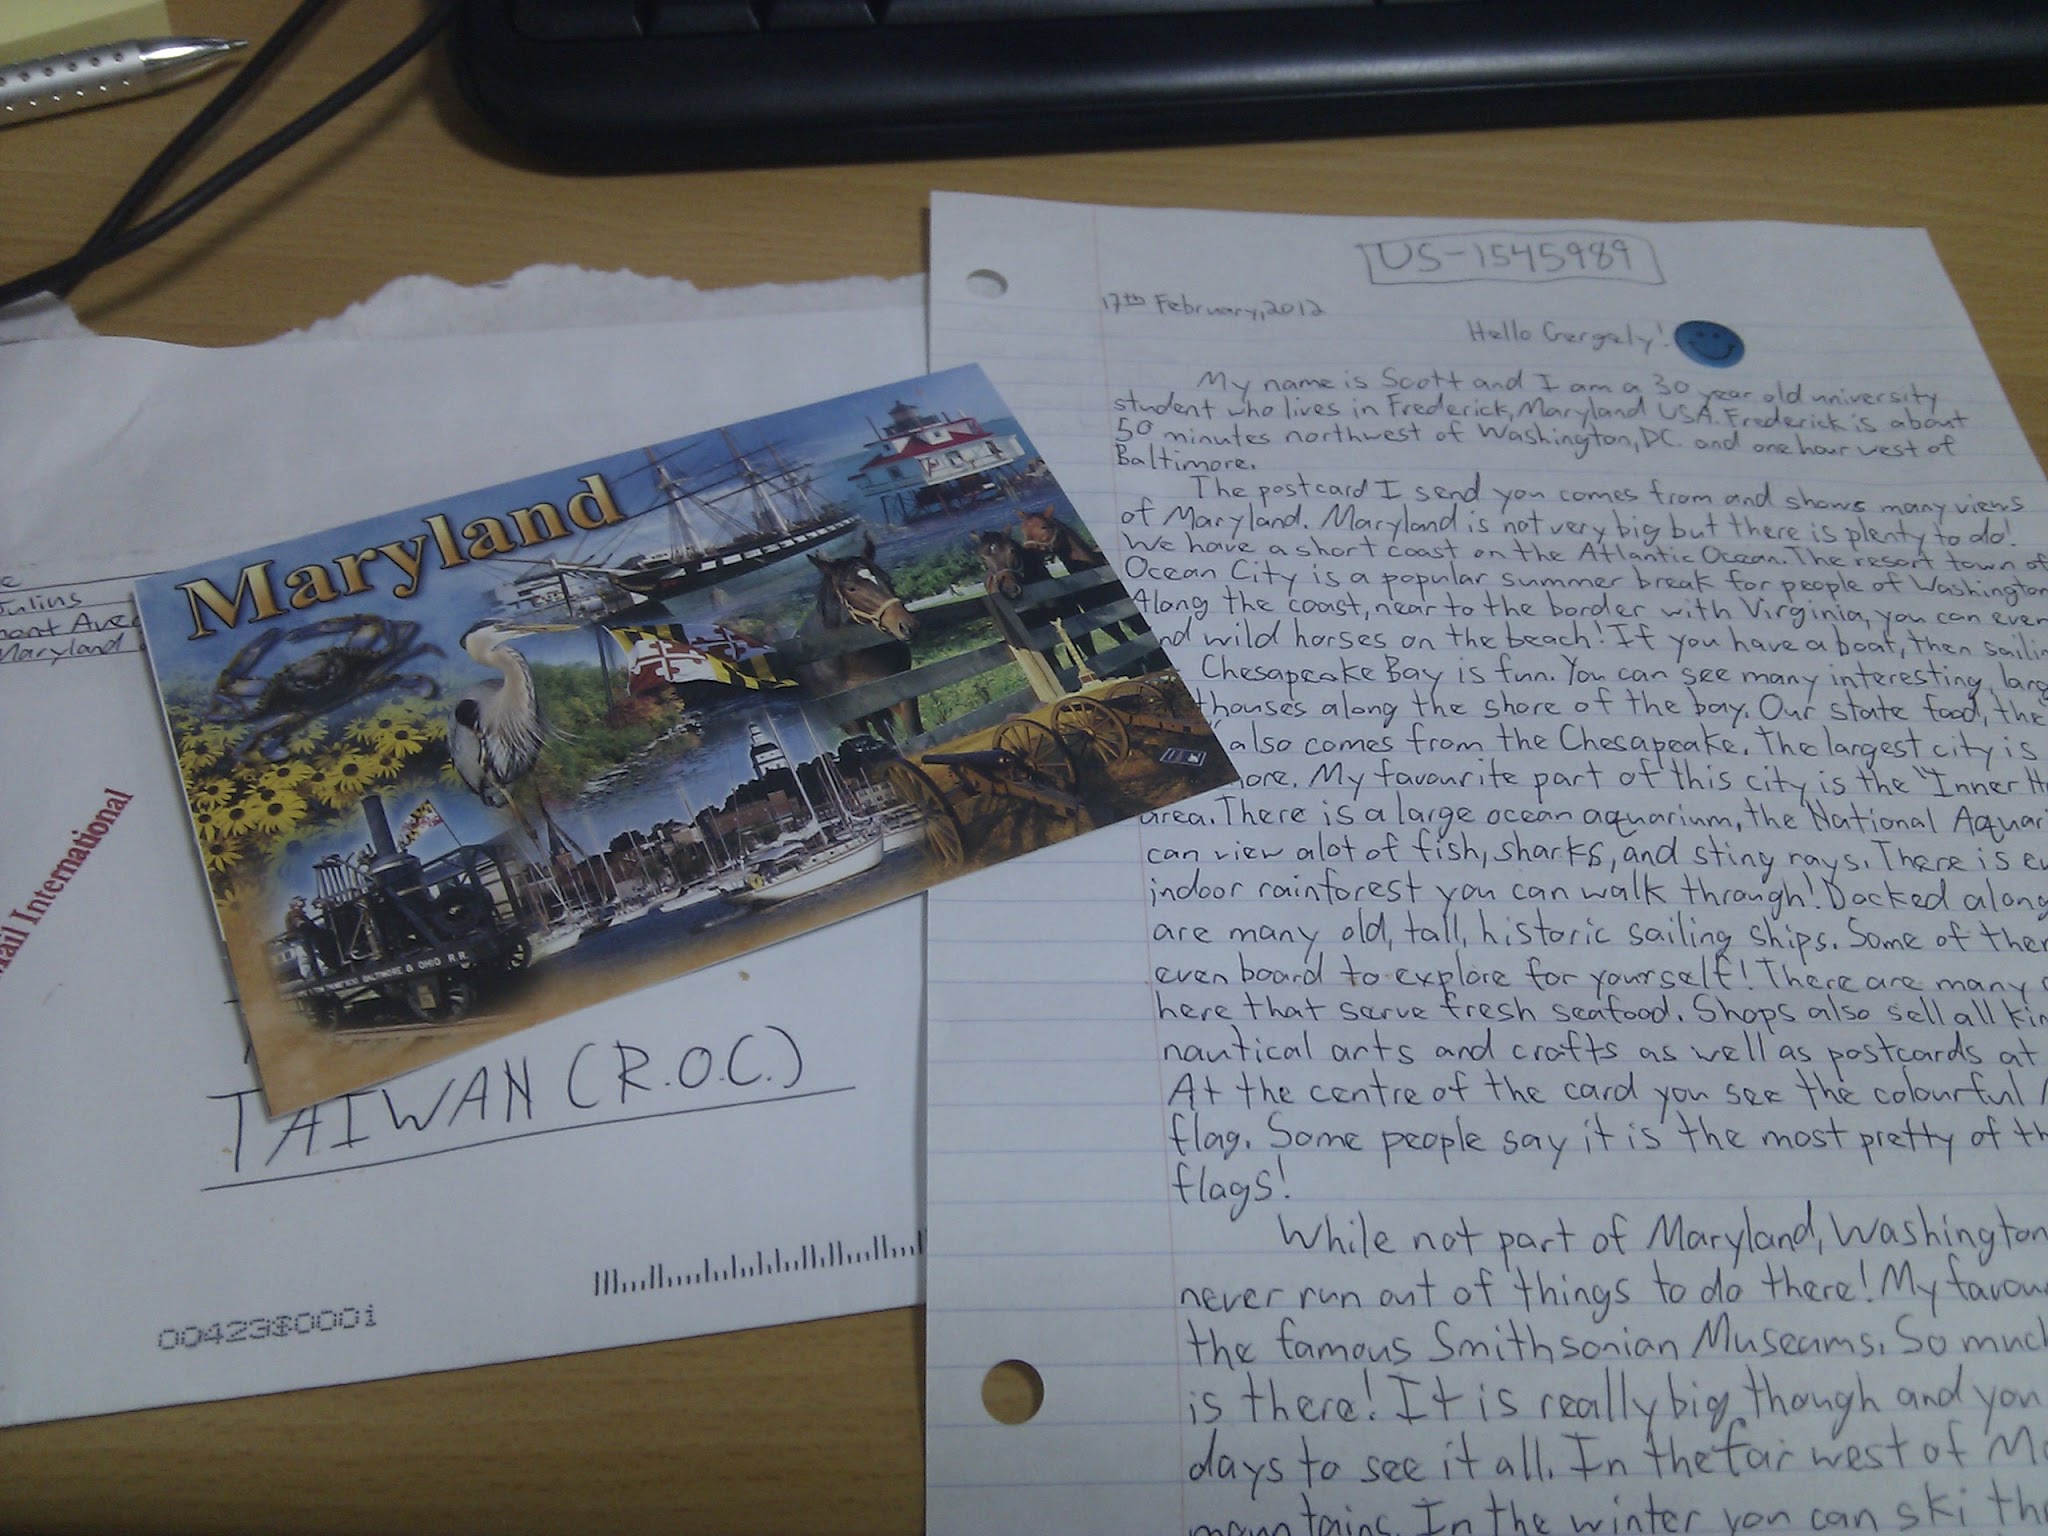 ulins
mont Ave
Maryland
Mail International
TAIWAN (R.O.C.)
00423$0001
Maryland
BALTIMORE & OHIO R.R.
US-1545989
17th February, 2012
Hello Gergely!
My name is Scott and I am a 30 year old university
student who lives in Frederick, Maryland USA. Frederick is about
50 minutes northwest of Washington, DC. and one hour west of
Baltimore.
The postcard I send you comes from and shows many views
of Maryland. Maryland is not very big but there is plenty to do!
We have a short coast on the Atlantic Ocean. The resort town of
Ocean City is a popular summer break for people of Washington
Along the coast, near to the border with Virginia, you can even
nd wild horses on the beach! If you have a boat, then sailin
Chesapeake Bay is fun. You can see many interesting, larg
thouses along the shore of the bay. Our state food, the
" also comes from the Chesapeake. The largest city is
more. My favourite part of this city is the "Inner H
area. There is a large ocean aquarium, the National Aquari
can view alot of fish, sharks, and sting rays. There is ev
indoor rainforest you can walk through! Docked along
are many old, tall, historic sailing ships. Some of them
even board to explore for yourself! There are many
here that serve fresh seafood. Shops also sell all kin
nautical arts and crafts as well as postcards at
At the centre of the card you see the colourful
flag. Some people say it is the most pretty of th
flags!
While not part of Maryland, Washington
never run out of things to do there! My favou
the famous Smithsonian Museums. So much
is there! It is really big though and you
days to see it all. In the far west of Ma
mountains. In the winter you can ski th